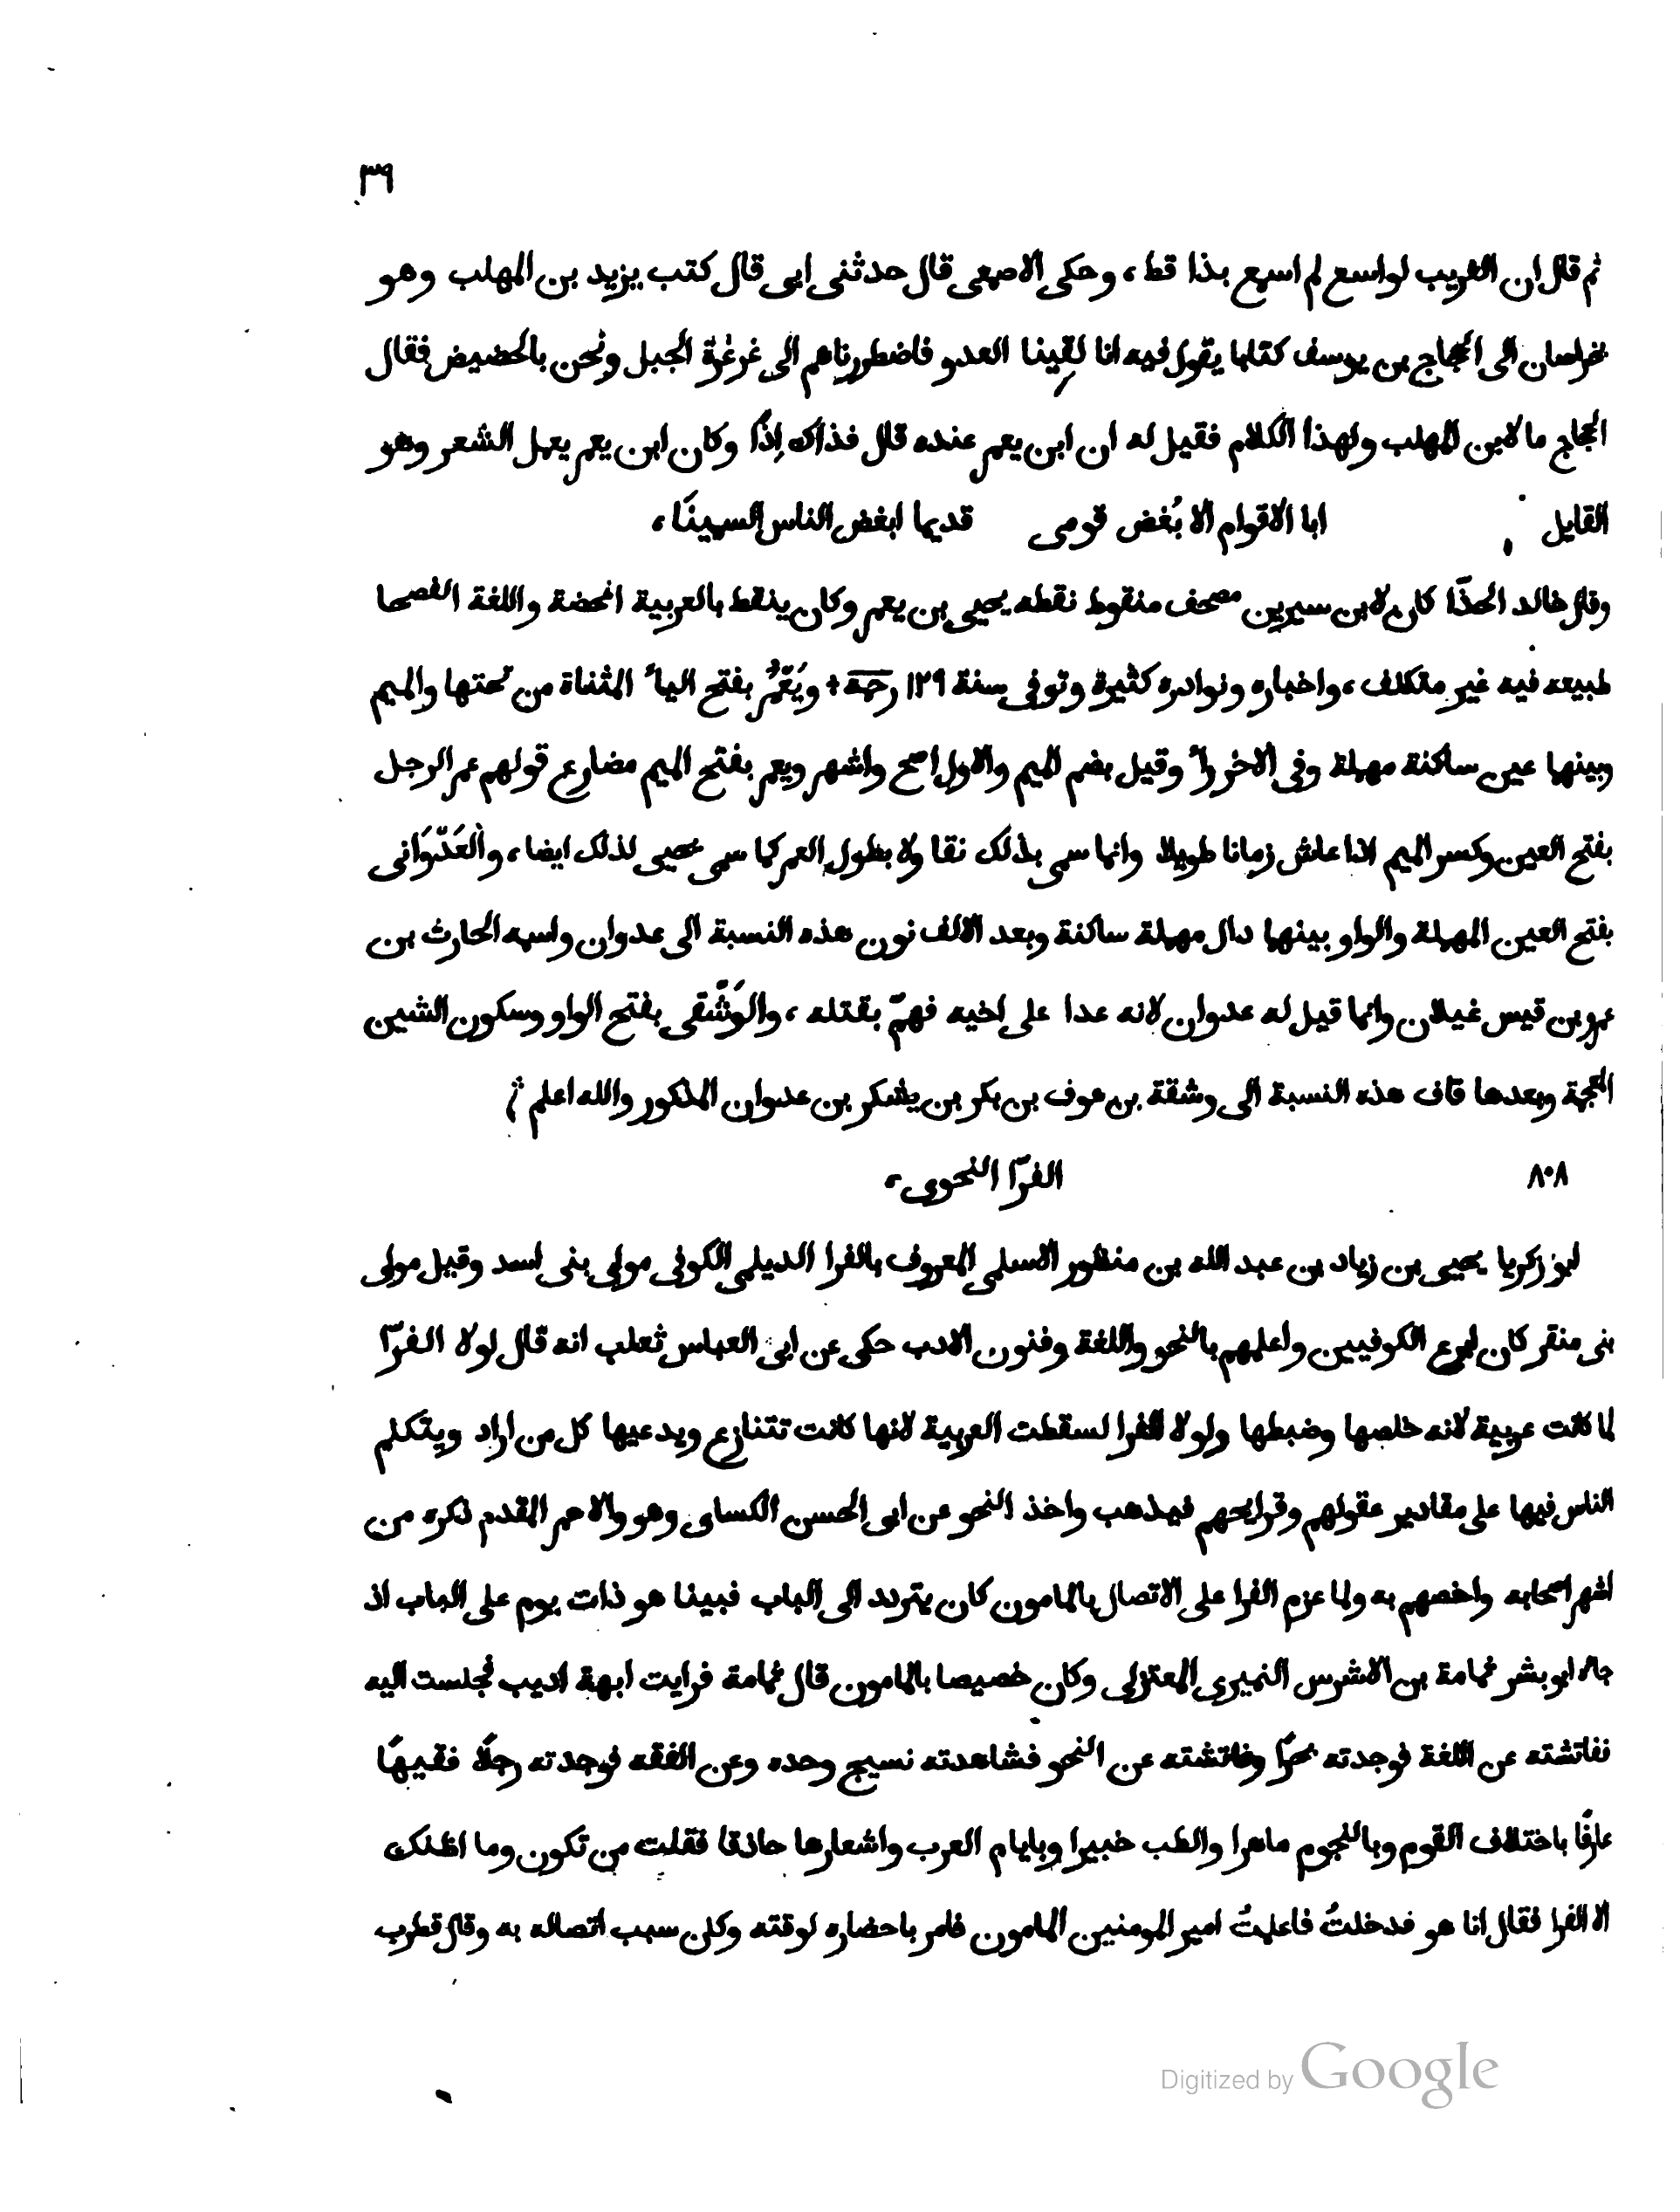 ٣٩
ثم قال ان الغريب لواسع لم اسمع بذا قط، وحكى الاصمعى قال حدثنى ابى قال كتب يزيد بن المهلب وهو
بخراسان الى الحجاج بن يوسف كتابا يقول فيه انا لقينا العدو فاضطررناهم الى غرغرة الجبل ونحن بالحضيض فقال
الحجاج ما لابن المهلب ولهذا الكلام فقيل له ان ابن يعمر عنده قال فذاك اِذًا وكان ابن يعمر يعمل الشعر وهو
القايل ابا الاقوام الا بُغض قومى قديما ابغض الناس السمينَا،
وقال خالد الحذّا كان لابن سيرين مصحف منقوط نقطه يحيى بن يعمر وكان ينقط بالعربية المحضة واللغة الفصحا
طبيعه فيه غير متكلف، واخباره ونوادره كثيرة وتوفى سنة ١٢٩ رحمة + ويَعْمَرُ بفتح الياء المثناة من تحتها والميم
وبينهما عين ساكنة مهملة وفى الاخر راء وقيل بضم الميم والاول اصح واشهر ويعمر بفتح الميم مضارع قولهم عمر الرجل
بفتح العين وكسر الميم اذا عاش زمانا طويلا وانما سمى بذلك تفا ولا بطول العمر كما سمى يحيى لذلك ايضا، والعَدْوَانى
بفتح العين المهملة والواو بينهما دال مهملة ساكنة وبعد الالف نون هذه النسبة الى عدوان واسمه الحارث بن
عمرو بن قيس غيلان وانما قيل له عدوان لانه عدا على اخيه فهمّ بقتله، والوَشْقى بفتح الواو وسكون الشين
المعجمة وبعدها قاف هذه النسبة الى وشقة بن عوف بن بكر بن يشكر بن عدوان المذكور والله اعلم
٨٠٨ الفرّا النحوى،
ابو زكريا يحيى بن زياد بن عبد الله بن منظور الاسلمى المعروف بالفرا الديلمى الكوفى مولى بنى اسد وقيل مولى
بنى منقر كان ابرع الكوفيين واعلمهم بالنحو واللغة وفنون الادب حكى عن ابى العباس ثعلب انه قال لولا الفرّا
لما كانت عربية لانه خلصها وضبطها ولولا الفرا لسقطت العربية لانها كانت تتنازع ويدعيها كل من اراد ويتكلم
الناس فيها على مقادير عقولهم وقرايحهم فيذهب واخذ النحو عن ابى الحسن الكساى وهو والاحمر المقدم ذكره من
اشهر اصحابه واخصهم به ولما عزم الفرا على الاتصال بالمامون كان يتردد الى الباب فبينا هو ذات يوم على الباب اذ
جاء ابو بشر ثمامة بن الاشرس النميرى المعتزلى وكان خصيصا بالمامون قال ثمامة فرايت ابهة اديب فجلست اليه
ففاتشته عن اللغة فوجدته بحرًا وفاتشته عن النحو فشاهدته نسيج وحده وعن الفقه فوجدته رجلًا فقيهًا
عارفًا باختلاف القوم وبالنجوم ماهرا والطب خبيرا وبايام العرب واشعارها حاذقا فقلت من تكون وما اظنك
الا الفرا فقال انا هو فدخلتُ فاعلمتُ امير المومنين المامون فامر باحضاره لوقته وكان سبب اتصاله به وقال قطرب
Digitized by Google